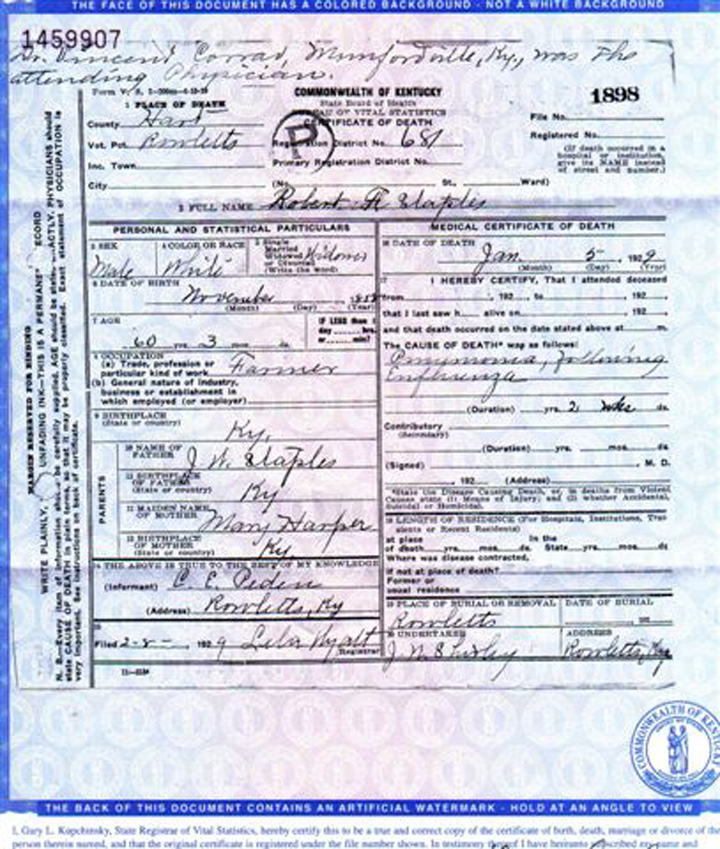 THE FACE OF THIS DOCUMENT HAS A COLORED BACKGROUND - NOT A WHITE BACKGROUND
1459907
Dr. Vincent Corrad, Munfordville, Ky., was the
attending Physician.
COMMONWEALTH OF KENTUCKY
State Board of Health
OF VITAL STATISTICS
CERTIFICATE OF DEATH
P
1 PLACE OF DEATH
County Hart
Vot. Pct. Rowletts
Inc. Town
City (No. St., Ward)
File No. 1898
Registered No.
(If death occurred in a hospital or institution, give its NAME instead of street and number.)
Registration District No. 681
Primary Registration District No.
2 FULL NAME Robert Staples
PERSONAL AND STATISTICAL PARTICULARS
3 SEX Male
4 COLOR OR RACE White
5 Single Married Widowed or Divorced (Write the word) Widower
6 DATE OF BIRTH November
(Month) (Day) (Year)
7 AGE 60 yrs. 3 mos. ds.
IF LESS than 1 day hrs. or min?
8 OCCUPATION
(a) Trade, profession or particular kind of work Farmer
(b) General nature of industry, business or establishment in which employed (or employer)
9 BIRTHPLACE (State or country) Ky.
PARENTS
10 NAME OF FATHER J. W. Staples
11 BIRTHPLACE OF FATHER (State or country) Ky
12 MAIDEN NAME OF MOTHER Mary Harper
13 BIRTHPLACE OF MOTHER (State or country) Ky
14 THE ABOVE IS TRUE TO THE BEST OF MY KNOWLEDGE
(Informant) C. E. Peden
(Address) Rowletts, Ky
15
Filed 2-8- 1929 Lela Wyatt
Registrar
MEDICAL CERTIFICATE OF DEATH
16 DATE OF DEATH Jan. 5 1929
(Month) (Day) (Year)
17 I HEREBY CERTIFY, That I attended deceased
from , 192 , to , 192
that I last saw h alive on , 192
and that death occurred on the date stated above at m.
The CAUSE OF DEATH* was as follows:
Pneumonia, following
Influenza
(Duration) yrs. 2 wks ds.
Contributory
(Secondary)
(Duration) yrs. mos. ds.
(Signed) , M. D.
, 192 (Address)
*State the Disease Causing Death, or, in deaths from Violent Causes state (1) Means of Injury; and (2) whether Accidental, Suicidal or Homicidal.
18 LENGTH OF RESIDENCE (For Hospitals, Institutions, Transients or Recent Residents)
At place of death yrs. mos. ds. In the State yrs. mos. ds
Where was disease contracted,
if not at place of death?
Former or usual residence
19 PLACE OF BURIAL OR REMOVAL Rowletts
DATE OF BURIAL
20 UNDERTAKER J. N. Shirley
ADDRESS Rowletts, Ky
MARGIN RESERVED FOR BINDING
WRITE PLAINLY, UNFADING INK—THIS IS A PERMANENT RECORD
COMMONWEALTH OF KENTUCKY
THE BACK OF THIS DOCUMENT CONTAINS AN ARTIFICIAL WATERMARK - HOLD AT AN ANGLE TO VIEW
I, Gary L. Kupchinsky, State Registrar of Vital Statistics, hereby certify this to be a true and correct copy of the certificate of birth, death, marriage or divorce of the
person therein named, and that the original certificate is registered under the file number shown. In testimony thereof I have hereunto subscribed my name and